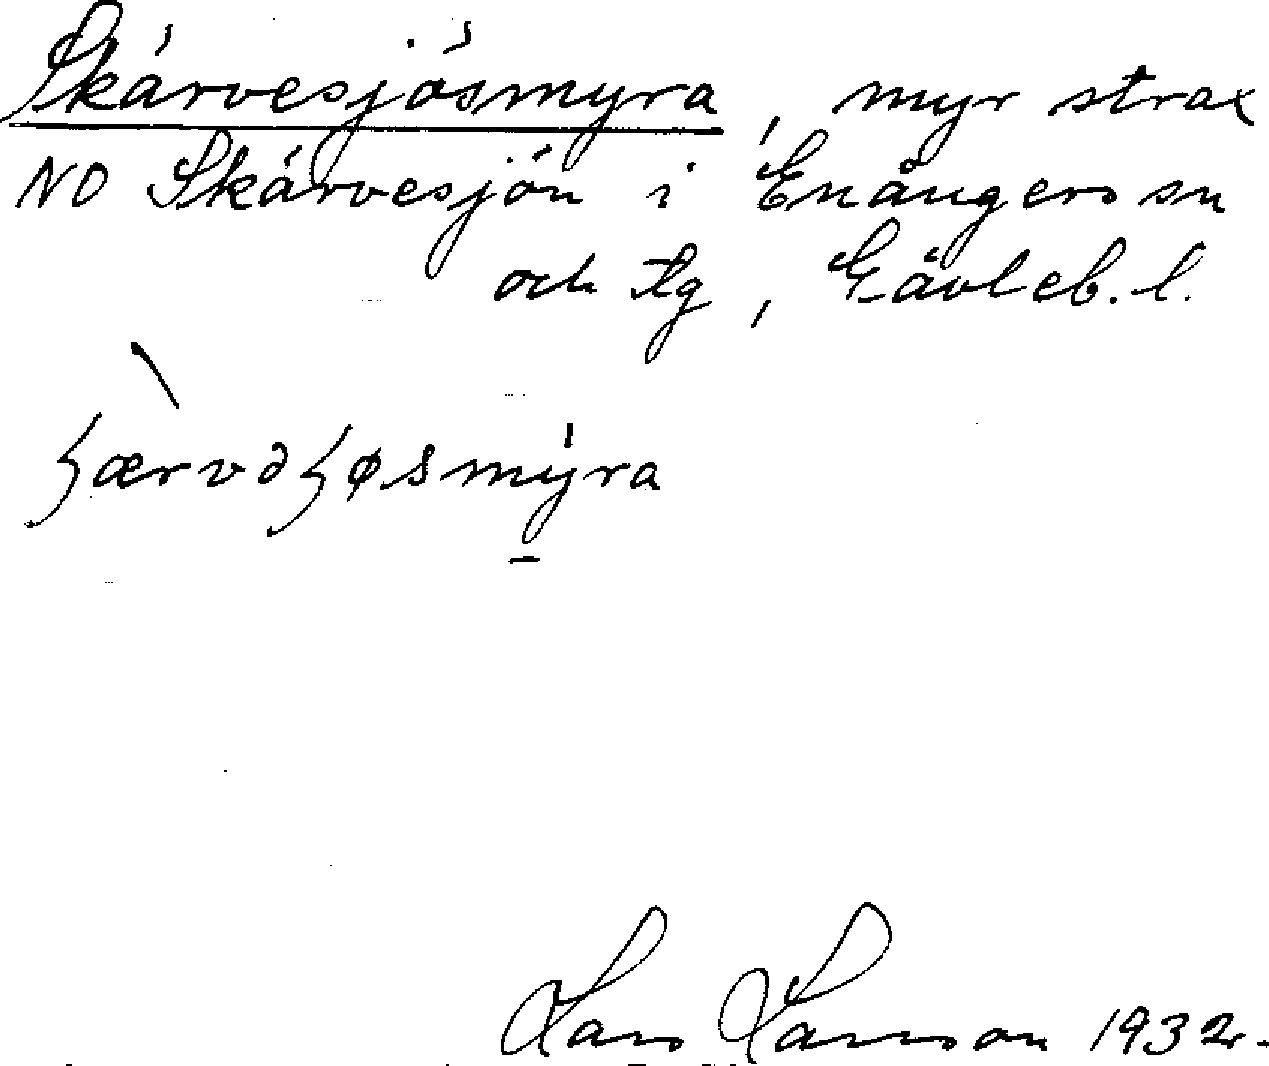 Skärvesjösmyra, myr strax
NO Skärvesjön i Enångers sn
och tg, Gävleb. l.
ʃærvəʃøsmýra
Lars Larsson 1932.